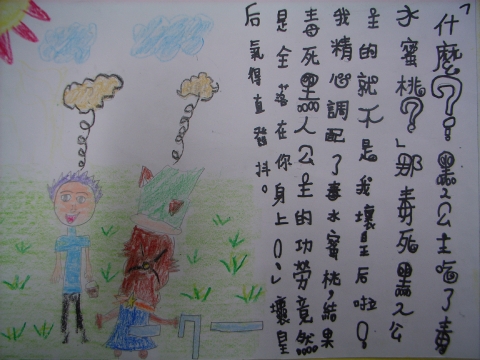 「什麼?!黑人公主吃了毒
水蜜桃?」那毒死黑人公
主的就不是我壞皇后啦!
我精心調配了毒水蜜桃,結果
毒死黑人公主的功勞竟然
是全落在你身上!」壞皇
后氣得直發抖。